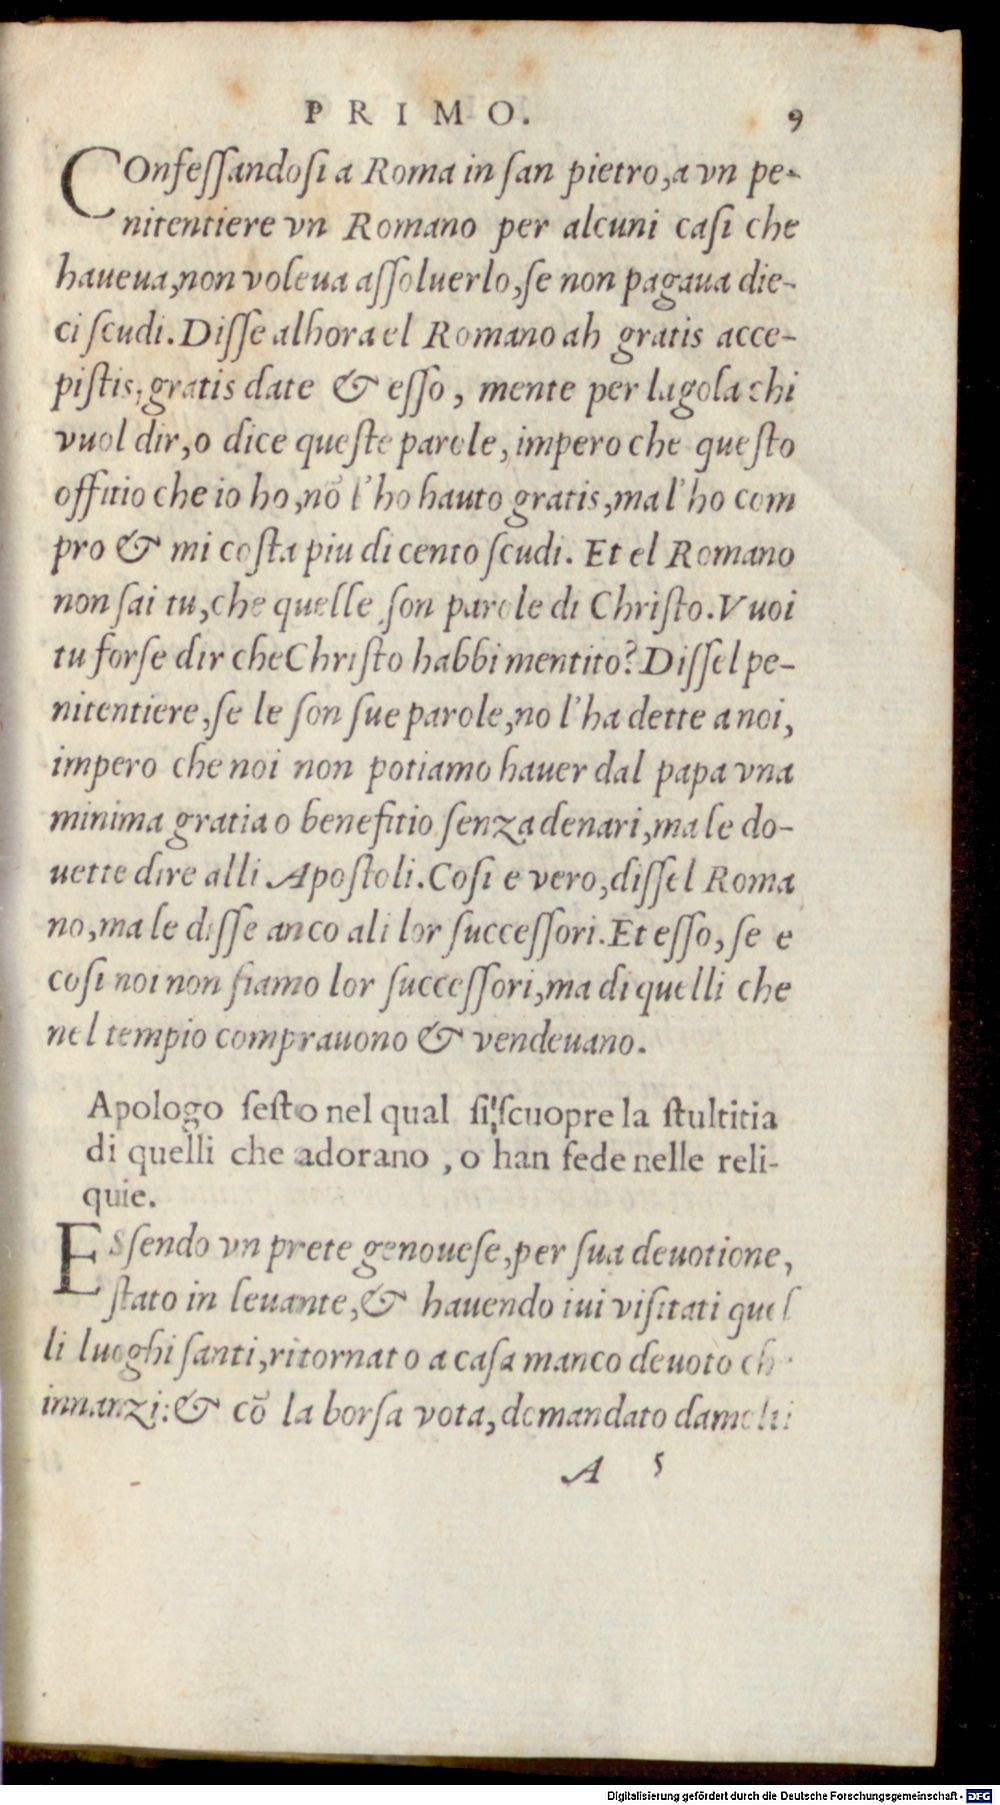 PRIMO. 9
COnfeſſandoſi a Roma in ſan pietro, a vn pe-
nitentiere vn Romano per alcuni caſi che
haueua, non voleua aſſoluerlo, ſe non pagaua die-
ci ſcudi. Diſſe alhora el Romano ah gratis acce-
piſtis, gratis date & eſſo, mente per la gola chi
vuol dir, o dice queſte parole, impero che queſto
offitio che io ho, nō l'ho hauto gratis, ma l'ho com
pro & mi coſta piu di cento ſcudi. Et el Romano
non ſai tu, che quelle ſon parole di Chriſto. Vuoi
tu forſe dir che Chriſto habbi mentito? Diſſel pe-
nitentiere, ſe le ſon ſue parole, no l'ha dette a noi,
impero che noi non potiamo hauer dal papa vna
minima gratia o benefitio ſenza denari, ma le do-
uette dire alli Apoſtoli. Coſi e vero, diſſel Roma
no, ma le diſſe anco ali lor ſucceſſori. Et eſſo, ſe e
coſi noi non ſiamo lor ſucceſſori, ma di quelli che
nel tempio comprauono & vendeuano.
Apologo ſeſto nel qual ſi ſcuopre la ſtultitia
di quelli che adorano, o han fede nelle reli-
quie.
ESſendo vn prete genoueſe, per ſua deuotione,
ſtato in leuante, & hauendo iui viſitati quel
li luoghi ſanti, ritornato a caſa manco deuoto che
innanzi: & cō la borſa vota, domandato da molti
A 5
Digitalisierung gefördert durch die Deutsche Forschungsgemeinschaft - DFG